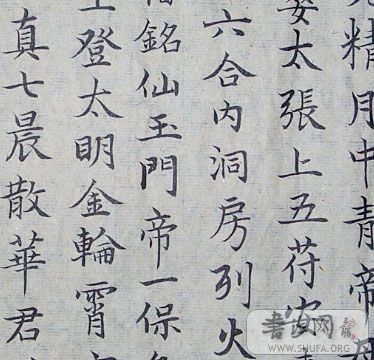 精月中青帝
太張上五苻
六合内洞房列火
銘仙玉門帝一保
上登太明金輪霄
真七晨散華君
书法网
SHUFA.ORG